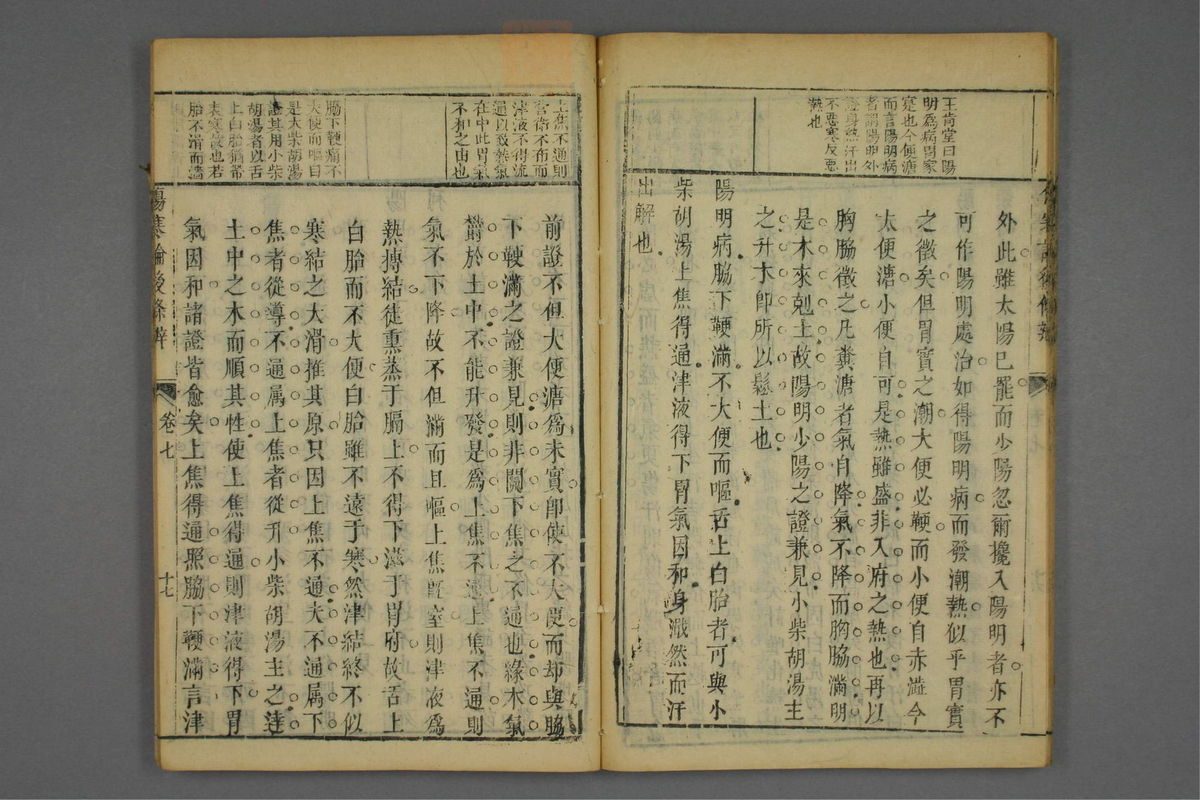 王肯堂曰陽
明爲病胃家
寔也今便溏
而言陽明病
者謂陽明外
證身熱汗出
不惡寒反惡
熱也
外此雖太陽已罷而少陽忽爾攙入陽明者亦不
可作陽明處治如得陽明病而發潮熱似乎胃實
之徵矣但胃實之潮大便必鞕而小便自赤澁今
大便溏小便自可是熱雖盛非入府之熱也再以
胸脇徵之凡糞溏者氣自降氣不降而胸脇滿明
是木來剋土故陽明少陽之證兼見小柴胡湯主
之升木卽所以鬆土也
陽明病脇下鞕滿不大便而嘔舌上白胎者可與小
柴胡湯上焦得通津液得下胃氣因和身濈然而汗
出解也
上焦不通則
營衛不布而
津液不得流
通以致熱氣
在中此胃氣
不和之由也
脇下鞕痛不
大便而嘔自
是大柴胡湯
證其用小柴
胡湯者以舌
上白胎猶帶
表寒故也若
胎不滑而濇
前證不但大便溏爲未實卽使不大便而却與脇
下鞕滿之證兼見則非關下焦之不通也緣木氣
鬱於土中不能升發是爲上焦不通上焦不通則
氣不下降故不但滿而且嘔上焦旣窒則津液爲
熱摶結徒熏蒸于膈上不得下滋于胃府故舌上
白胎而不大便白胎雖不遠于寒然津結終不似
寒結之大滑推其原只因上焦不通夫不通属下
焦者從導不通属上焦者從升小柴胡湯主之達
土中之木而順其性使上焦得通則津液得下胃
氣因和諸證皆愈矣上焦得通照脇下鞕滿言津
傷寒論後條辨
卷七
十七